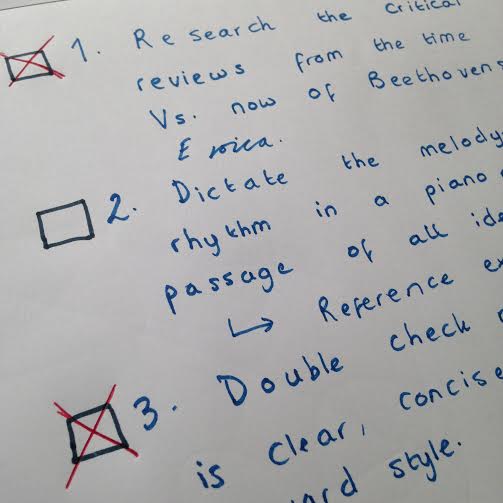 1. Research the critical
reviews from the time
Vs. now of Beethovens
Eroica.
2. Dictate the melody
rhythm in a piano
passage of all
↳ Reference
3. Double check
is clear, concise
style.